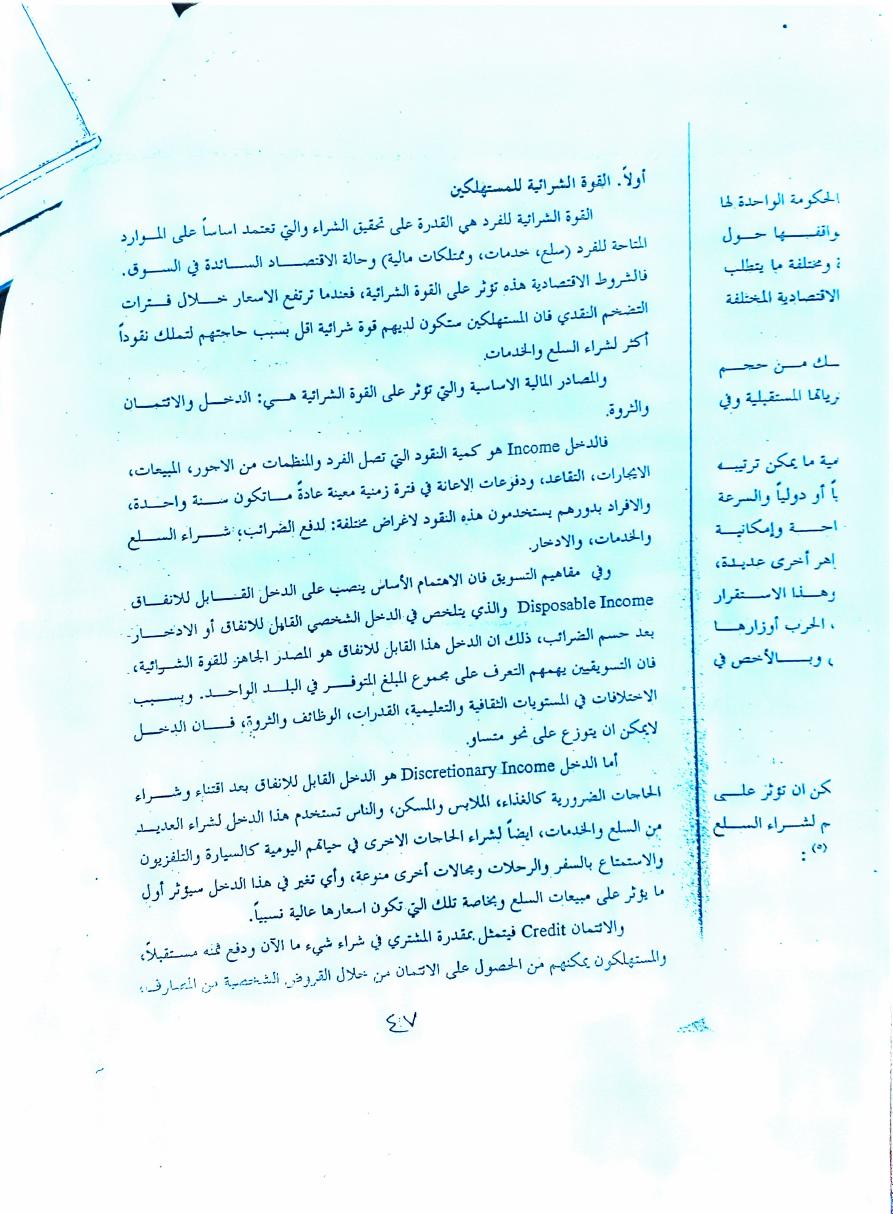 أولاً. القوة الشرائية للمستهلكين
القوة الشرائية للفرد هي القدرة على تحقيق الشراء والتي تعتمد اساساً على الموارد
المتاحة للفرد (سلع، خدمات، وممتلكات مالية) وحالة الاقتصاد السائدة في السوق.
فالشروط الاقتصادية هذه تؤثر على القوة الشرائية، فعندما ترتفع الاسعار خلال فترات
التضخم النقدي فان المستهلكين ستكون لديهم قوة شرائية اقل بسبب حاجتهم لتملك نقوداً
أكثر لشراء السلع والخدمات.
والمصادر المالية الاساسية والتي تؤثر على القوة الشرائية هي: الدخل والائتمان
والثروة.
فالدخل Income هو كمية النقود التي تصل الفرد والمنظمات من الاجور، المبيعات،
الايجارات، التقاعد، ودفوعات الاعانة في فترة زمنية معينة عادةً ماتكون سنة واحدة،
والافراد بدورهم يستخدمون هذه النقود لاغراض مختلفة: لدفع الضرائب؛ شراء السلع
والخدمات، والادخار.
وفي مفاهيم التسويق فان الاهتمام الأساس ينصب على الدخل القابل للانفاق
Disposable Income والذي يتلخص في الدخل الشخصي القابل للانفاق أو الادخار
بعد حسم الضرائب، ذلك ان الدخل هذا القابل للانفاق هو المصدر الجاهز للقوة الشرائية،
فان التسويقيين يهمهم التعرف على مجموع المبلغ المتوفر في البلد الواحد. وبسبب
الاختلافات في المستويات الثقافية والتعليمية، القدرات، الوظائف والثروة، فان الدخل
لايمكن ان يتوزع على نحو متساو.
أما الدخل Discretionary Income هو الدخل القابل للانفاق بعد اقتناء وشراء
الحاجات الضرورية كالغذاء، الملابس والمسكن، والناس تستخدم هذا الدخل لشراء العديد
من السلع والخدمات، ايضاً لشراء الحاجات الاخرى في حياتهم اليومية كالسيارة والتلفزيون
والاستمتاع بالسفر والرحلات ومجالات أخرى منوعة، وأي تغير في هذا الدخل سيؤثر أول
ما يؤثر على مبيعات السلع وبخاصة تلك التي تكون اسعارها عالية نسبياً.
والائتمان Credit فيتمثل بمقدرة المشتري في شراء شيء ما الآن ودفع ثمنه مستقبلاً،
والمستهلكون يمكنهم من الحصول على الائتمان من خلال القروض الشخصية من المصارف،
٤٧
الحكومة الواحدة لها
حول
ومختلفة ما يتطلب
الاقتصادية المختلفة
من حجم
المستقبلية وفي
ما يمكن ترتيبه
أو دولياً والسرعة
وإمكانية
أخرى عديدة،
وهذا الاستقرار
الحرب أوزارها
وبالأخص في
ان تؤثر على
لشراء السلع
(٥) :